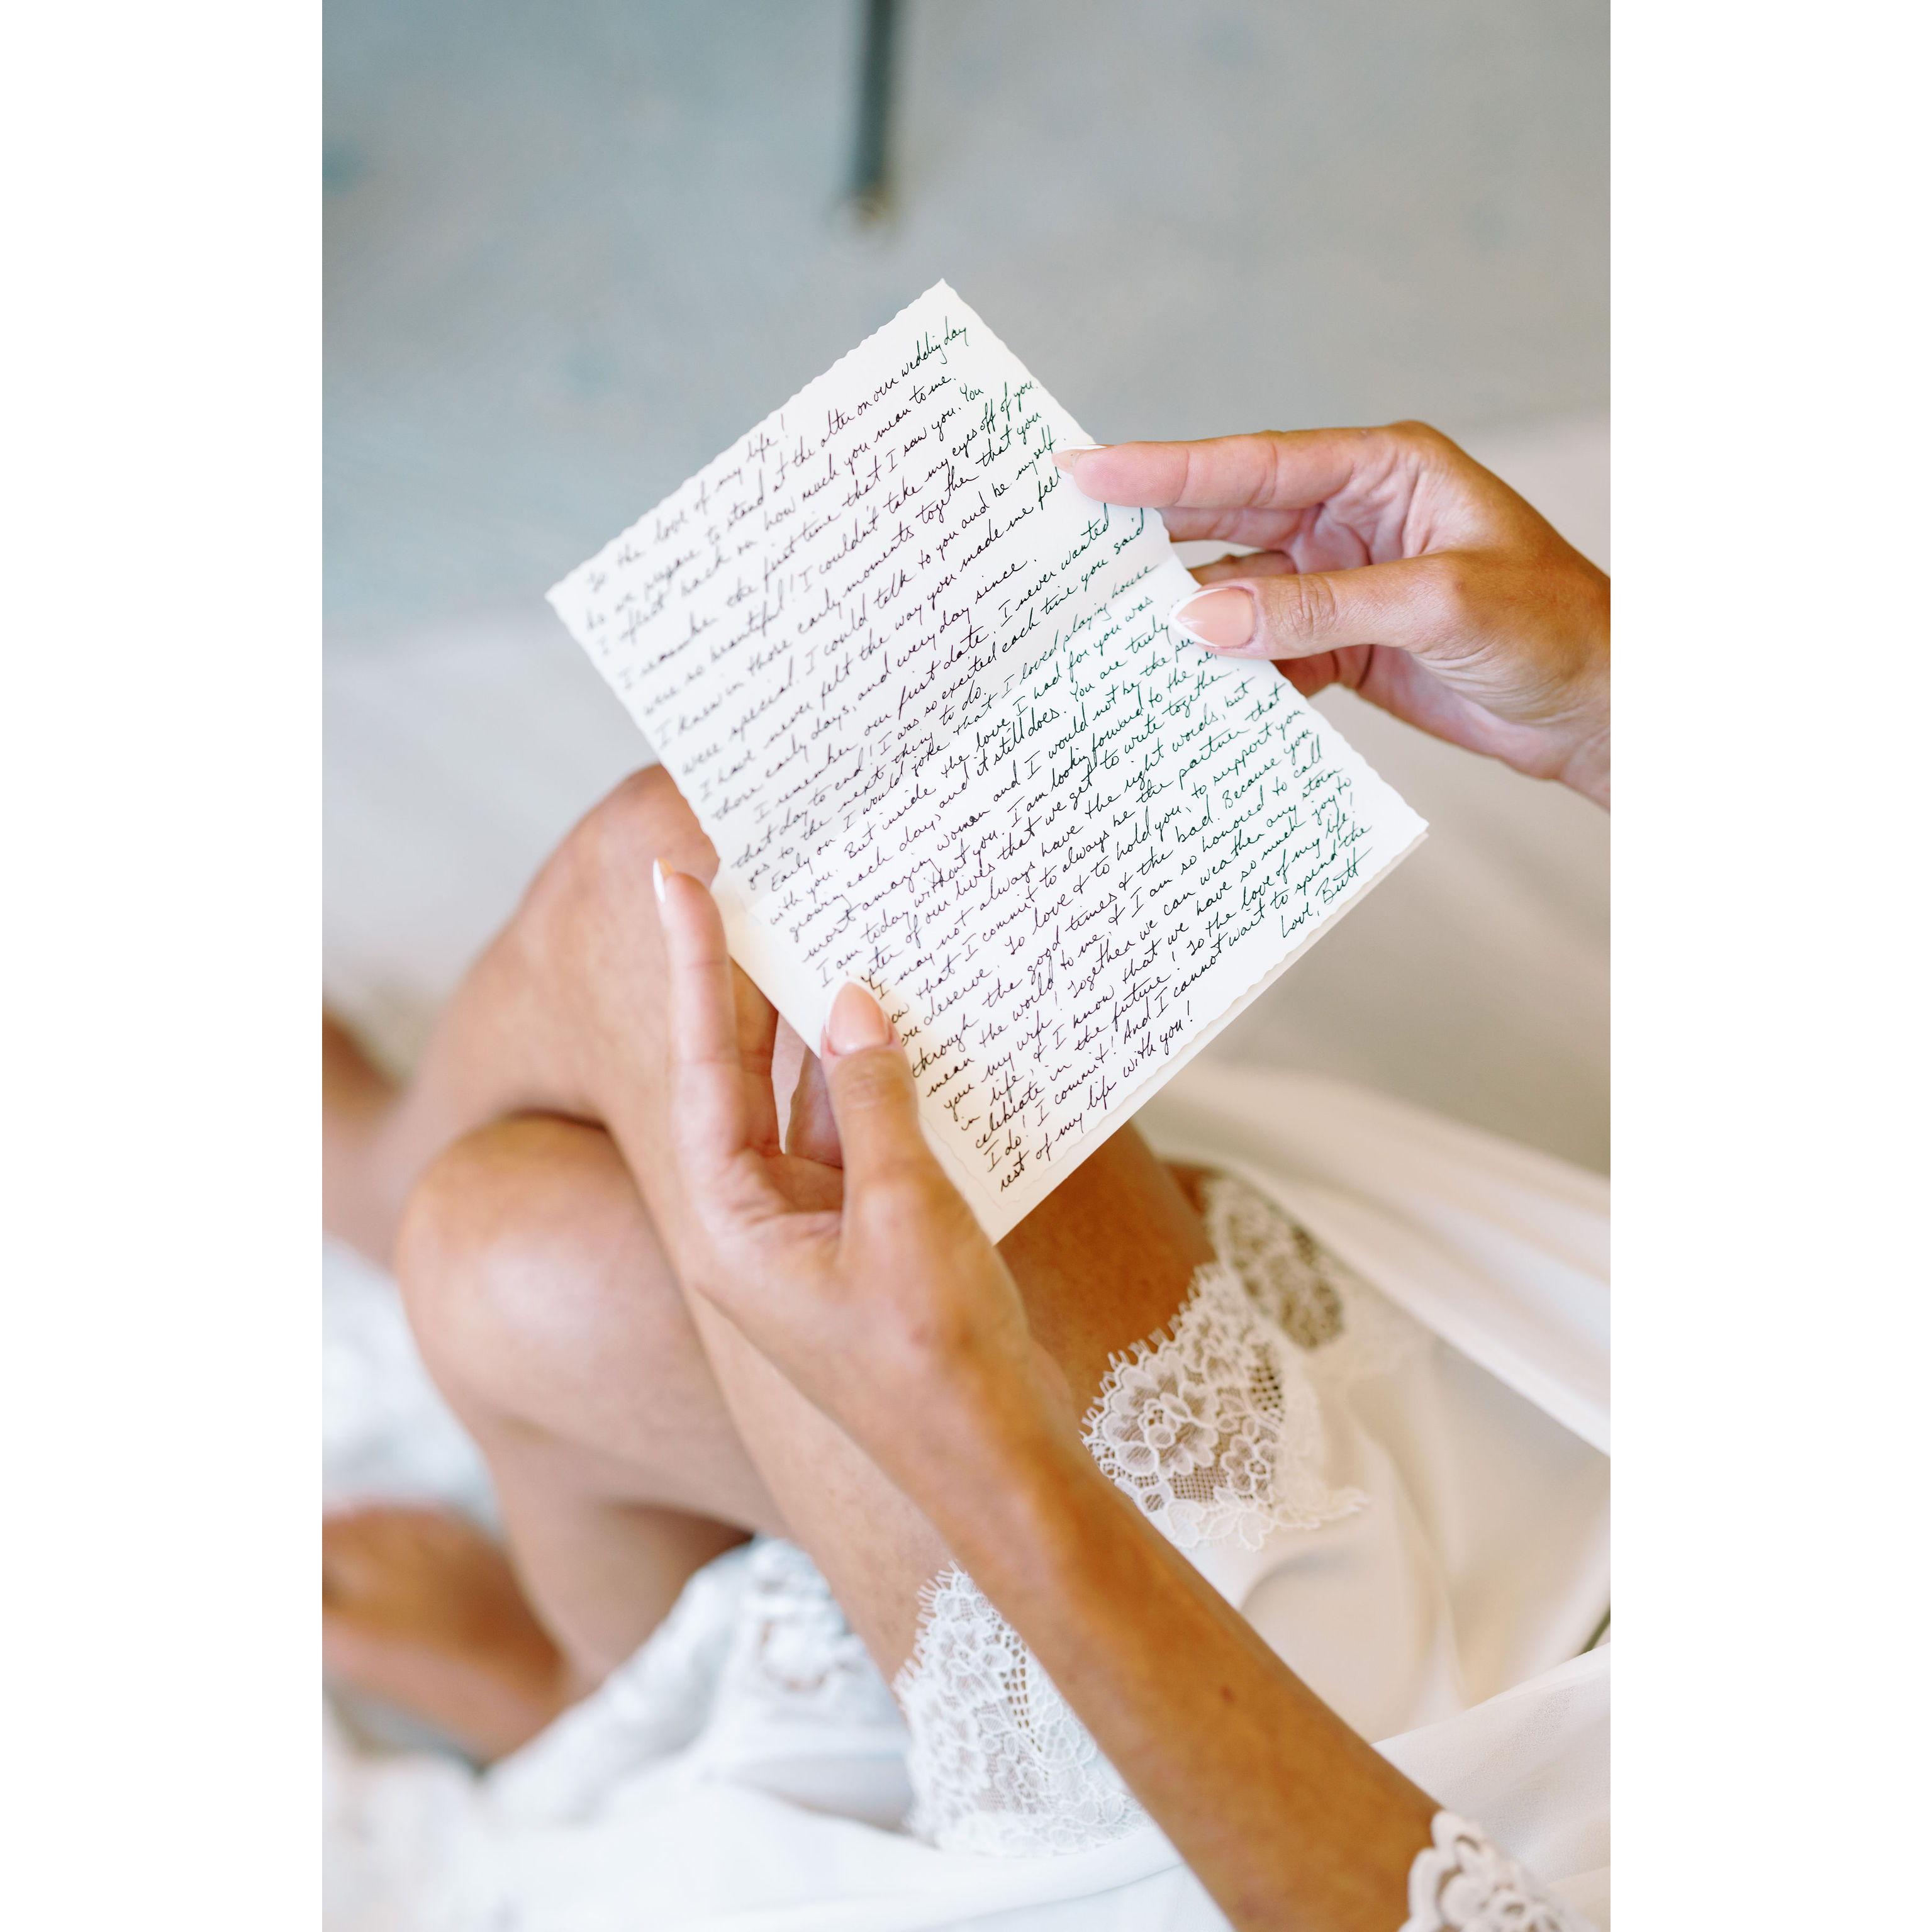 To the love of my life!
As we prepare to stand at the alter on our wedding day
I often back on how much you mean to me.
I remember the first time that I saw you. You
were so beautiful! I couldn't take my eyes off of you.
I knew in those early moments together that you
were special. I could talk to you and be myself.
I have never felt the way you made me felt
those early days, and everyday since.
I remember our first date. I never wanted
that day to end! I was so excited each time you said
yes to the next thing to do.
Early on I would joke that I loved playing house
with you. But inside the love I had for you was
growing each day, and it still does. You are truly
most amazing woman and I would not be the
I am today without you. I am looking forward to the
of our lives that we get to write together.
I may not always have the right words, but
that I commit to always be the partner that
you deserve. To love & to hold you, to support you
through the good times & the bad. Because you
mean the world to me, & I am so honored to call
you my wife! Together we can weather any storm
in life, & I know that we have so much joy to
celebrate in the future! To the love of my life!
I do! I commit! And I cannot wait to spend the
rest of my life with you!
Love, Britt